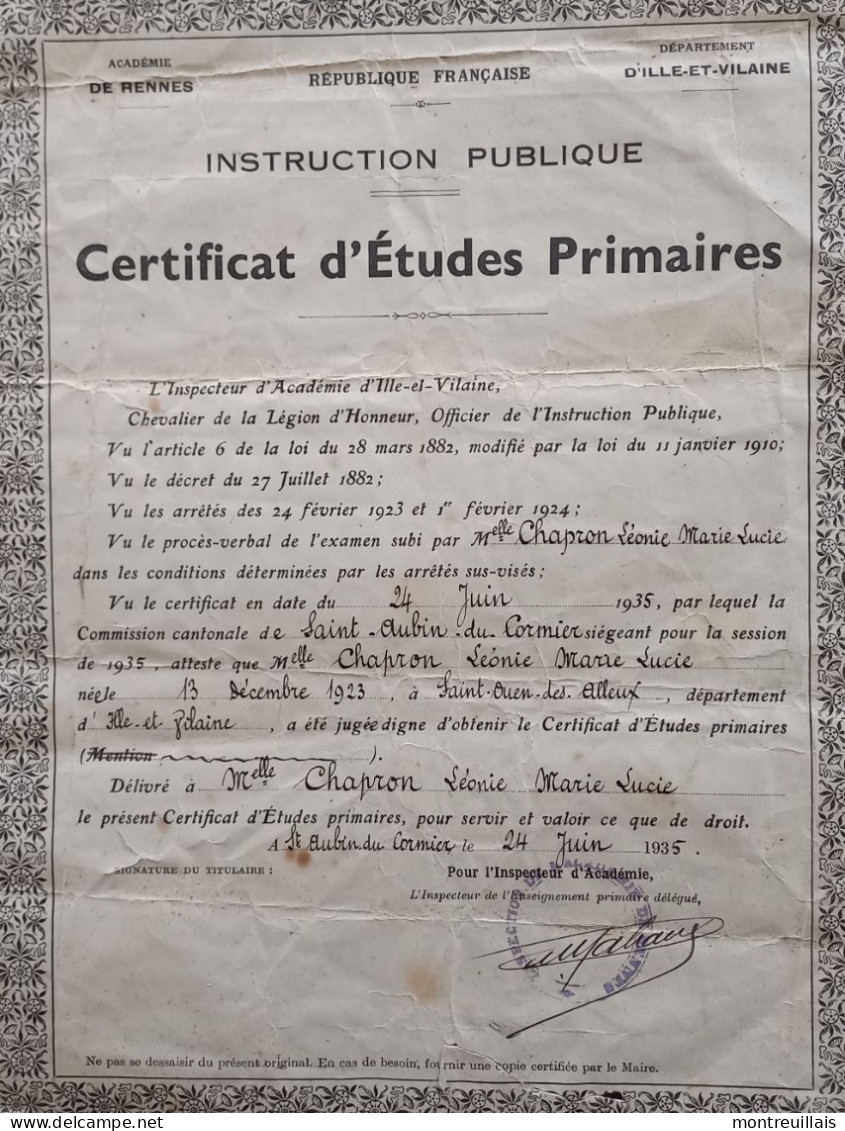 ACADÉMIE
DE RENNES
RÉPUBLIQUE FRANÇAISE
DÉPARTEMENT
D'ILLE-ET-VILAINE
INSTRUCTION PUBLIQUE
Certificat d'Études Primaires
L'Inspecteur d'Académie d'Ille-et-Vilaine,
Chevalier de la Légion d'Honneur, Officier de l'Instruction Publique,
Vu l'article 6 de la loi du 28 mars 1882, modifié par la loi du 11 janvier 1910;
Vu le décret du 27 Juillet 1882;
Vu les arrêtés des 24 février 1923 et 1er février 1924;
Vu le procès-verbal de l'examen subi par Melle Chapron Léonie Marie Lucie
dans les conditions déterminées par les arrêtés sus-visés;
Vu le certificat en date du 24 Juin 1935, par lequel la
Commission cantonale de Saint-Aubin-du-Cormier siégeant pour la session
de 1935, atteste que Melle Chapron Léonie Marie Lucie
née le 13 Décembre 1923, à Saint-Ouen-des-Alleux, département
d'Ille-et-Vilaine, a été jugée digne d'obtenir le Certificat d'Études primaires
(Mention).
Délivré à Melle Chapron Léonie Marie Lucie
le présent Certificat d'Études primaires, pour servir et valoir ce que de droit.
A St Aubin du Cormier le 24 Juin 1935.
SIGNATURE DU TITULAIRE :
Pour l'Inspecteur d'Académie,
L'Inspecteur de l'Enseignement primaire délégué,
Ne pas se dessaisir du présent original. En cas de besoin, fournir une copie certifiée par le Maire.
Delcampe.net
montreuillais